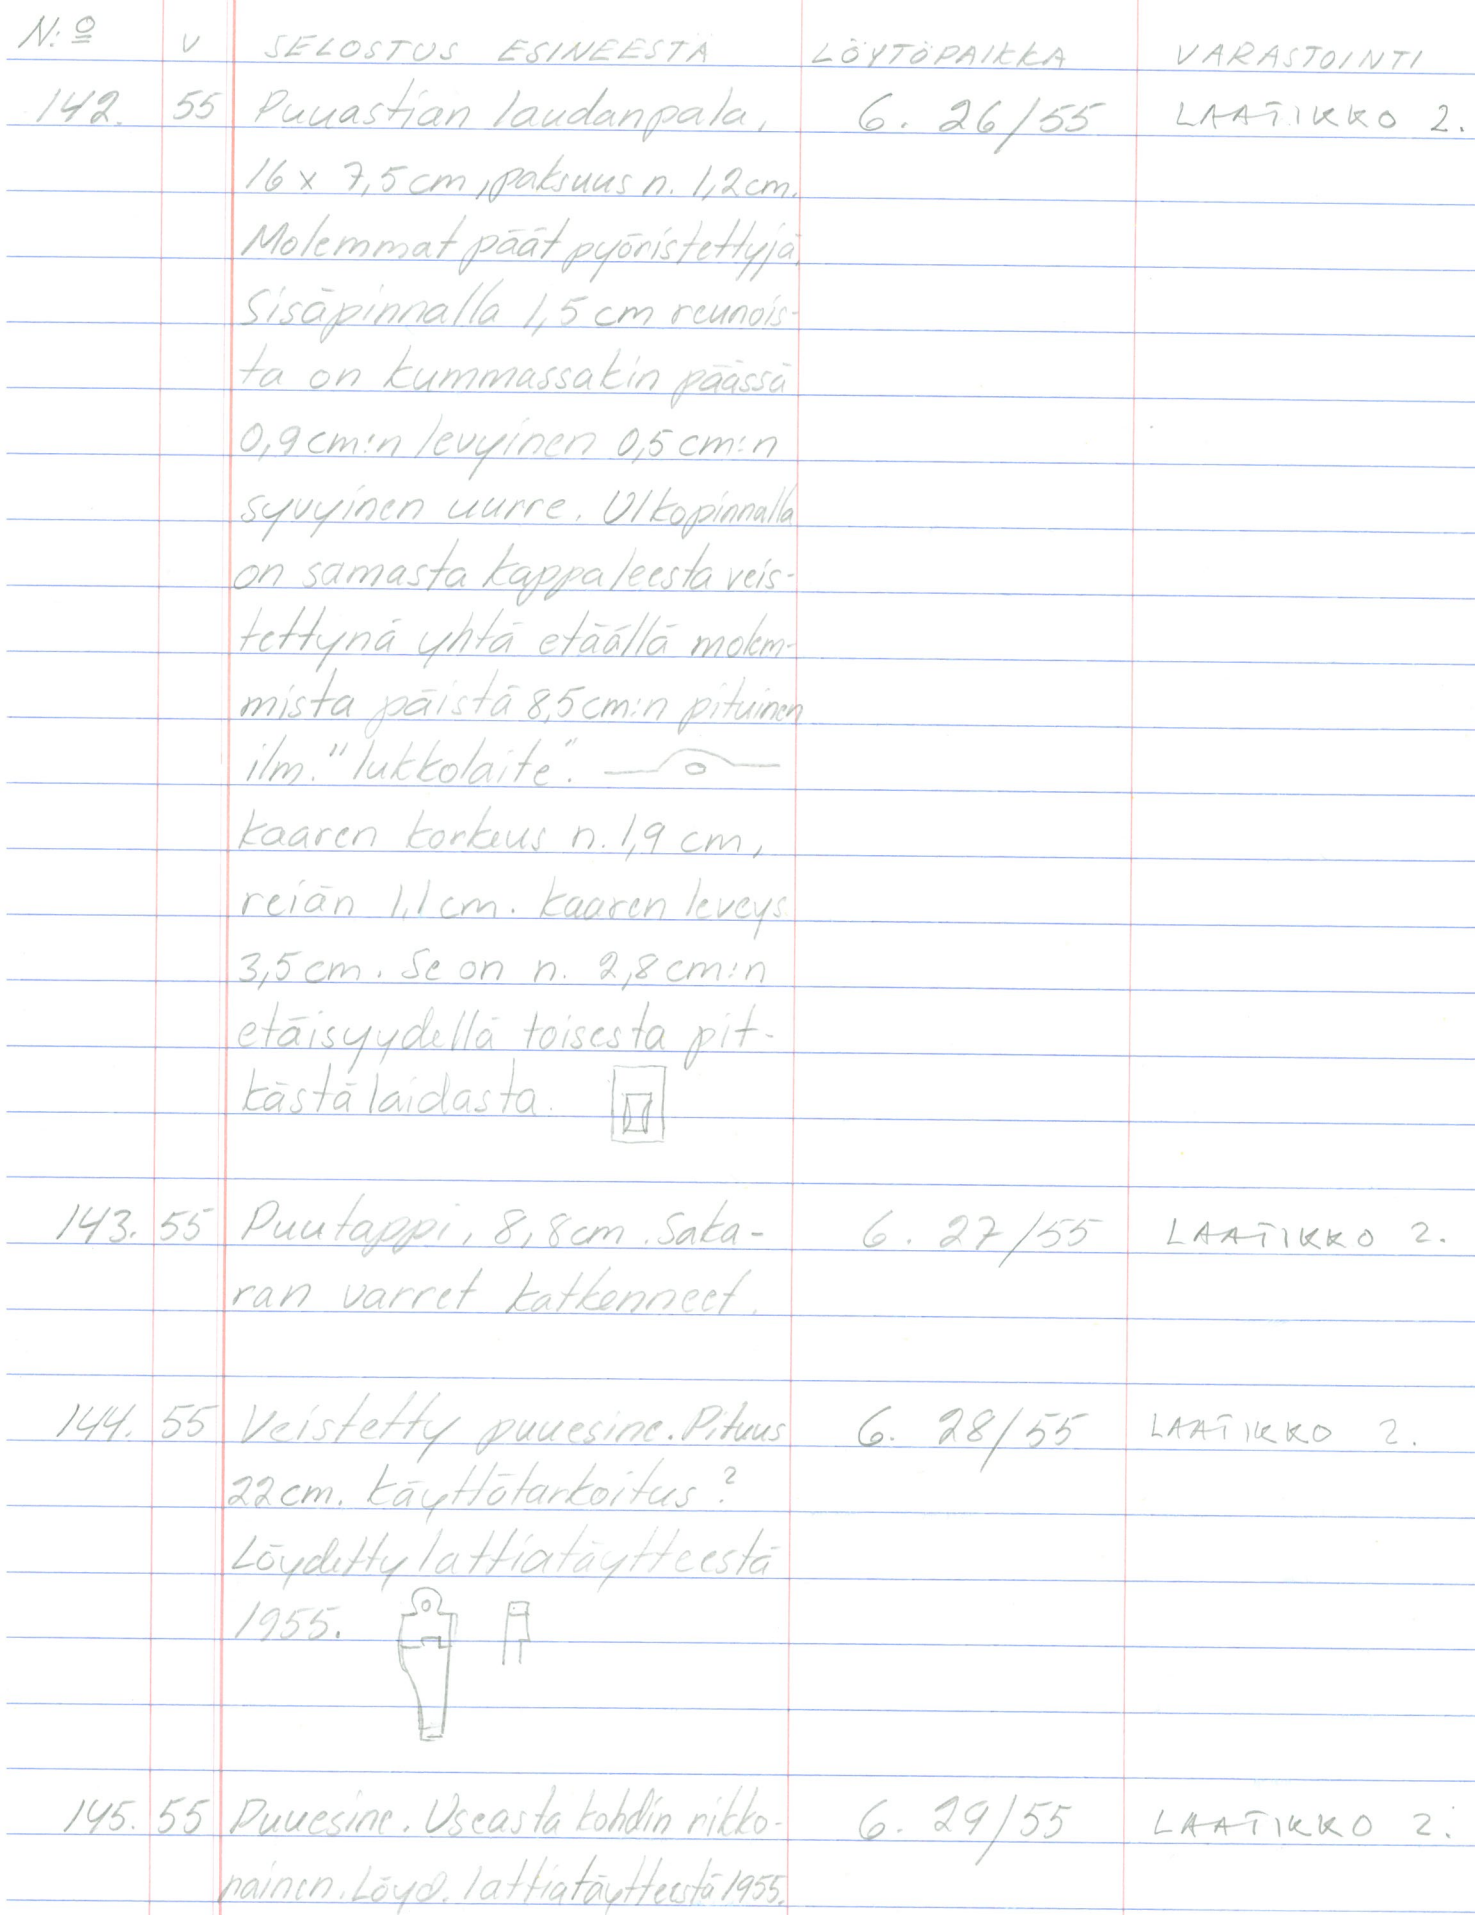 N:o V SELOSTUS ESINEESTÄ LÖYTÖPAIKKA VARASTOINTI
142. 55 Puuastian laudanpala, 6. 26/55 LAATIKKO 2.
16 x 7,5 cm, paksuus n. 1,2 cm.
Molemmat päät pyöristettyjä.
Sisäpinnalla 1,5 cm reunois-
ta on kummassakin päässä
0,9 cm:n levyinen 0,5 cm:n
syvyinen uurre. Ulkopinnalla
on samasta kappaleesta veis-
tettynä yhtä etäällä molem-
mista päistä 8,5 cm:n pituinen
ilm. "lukkolaite".
Kaaren korkeus n. 1,9 cm,
reiän 1,1 cm. Kaaren leveys
3,5 cm. Se on n. 2,8 cm:n
etäisyydellä toisesta pit-
kästä laidasta.
143. 55 Puutappi, 8,8 cm. Saka- 6. 27/55 LAATIKKO 2.
ran varret katkenneet.
144. 55 Veistetty puuesine. Pituus 6. 28/55 LAATIKKO 2.
22 cm. Käyttötarkoitus?
Löydetty lattiatäytteestä
1955.
145. 55 Puuesine. Useasta kohdin rikko- 6. 29/55 LAATIKKO 2.
nainen. Löyd. lattiatäytteestä 1955.